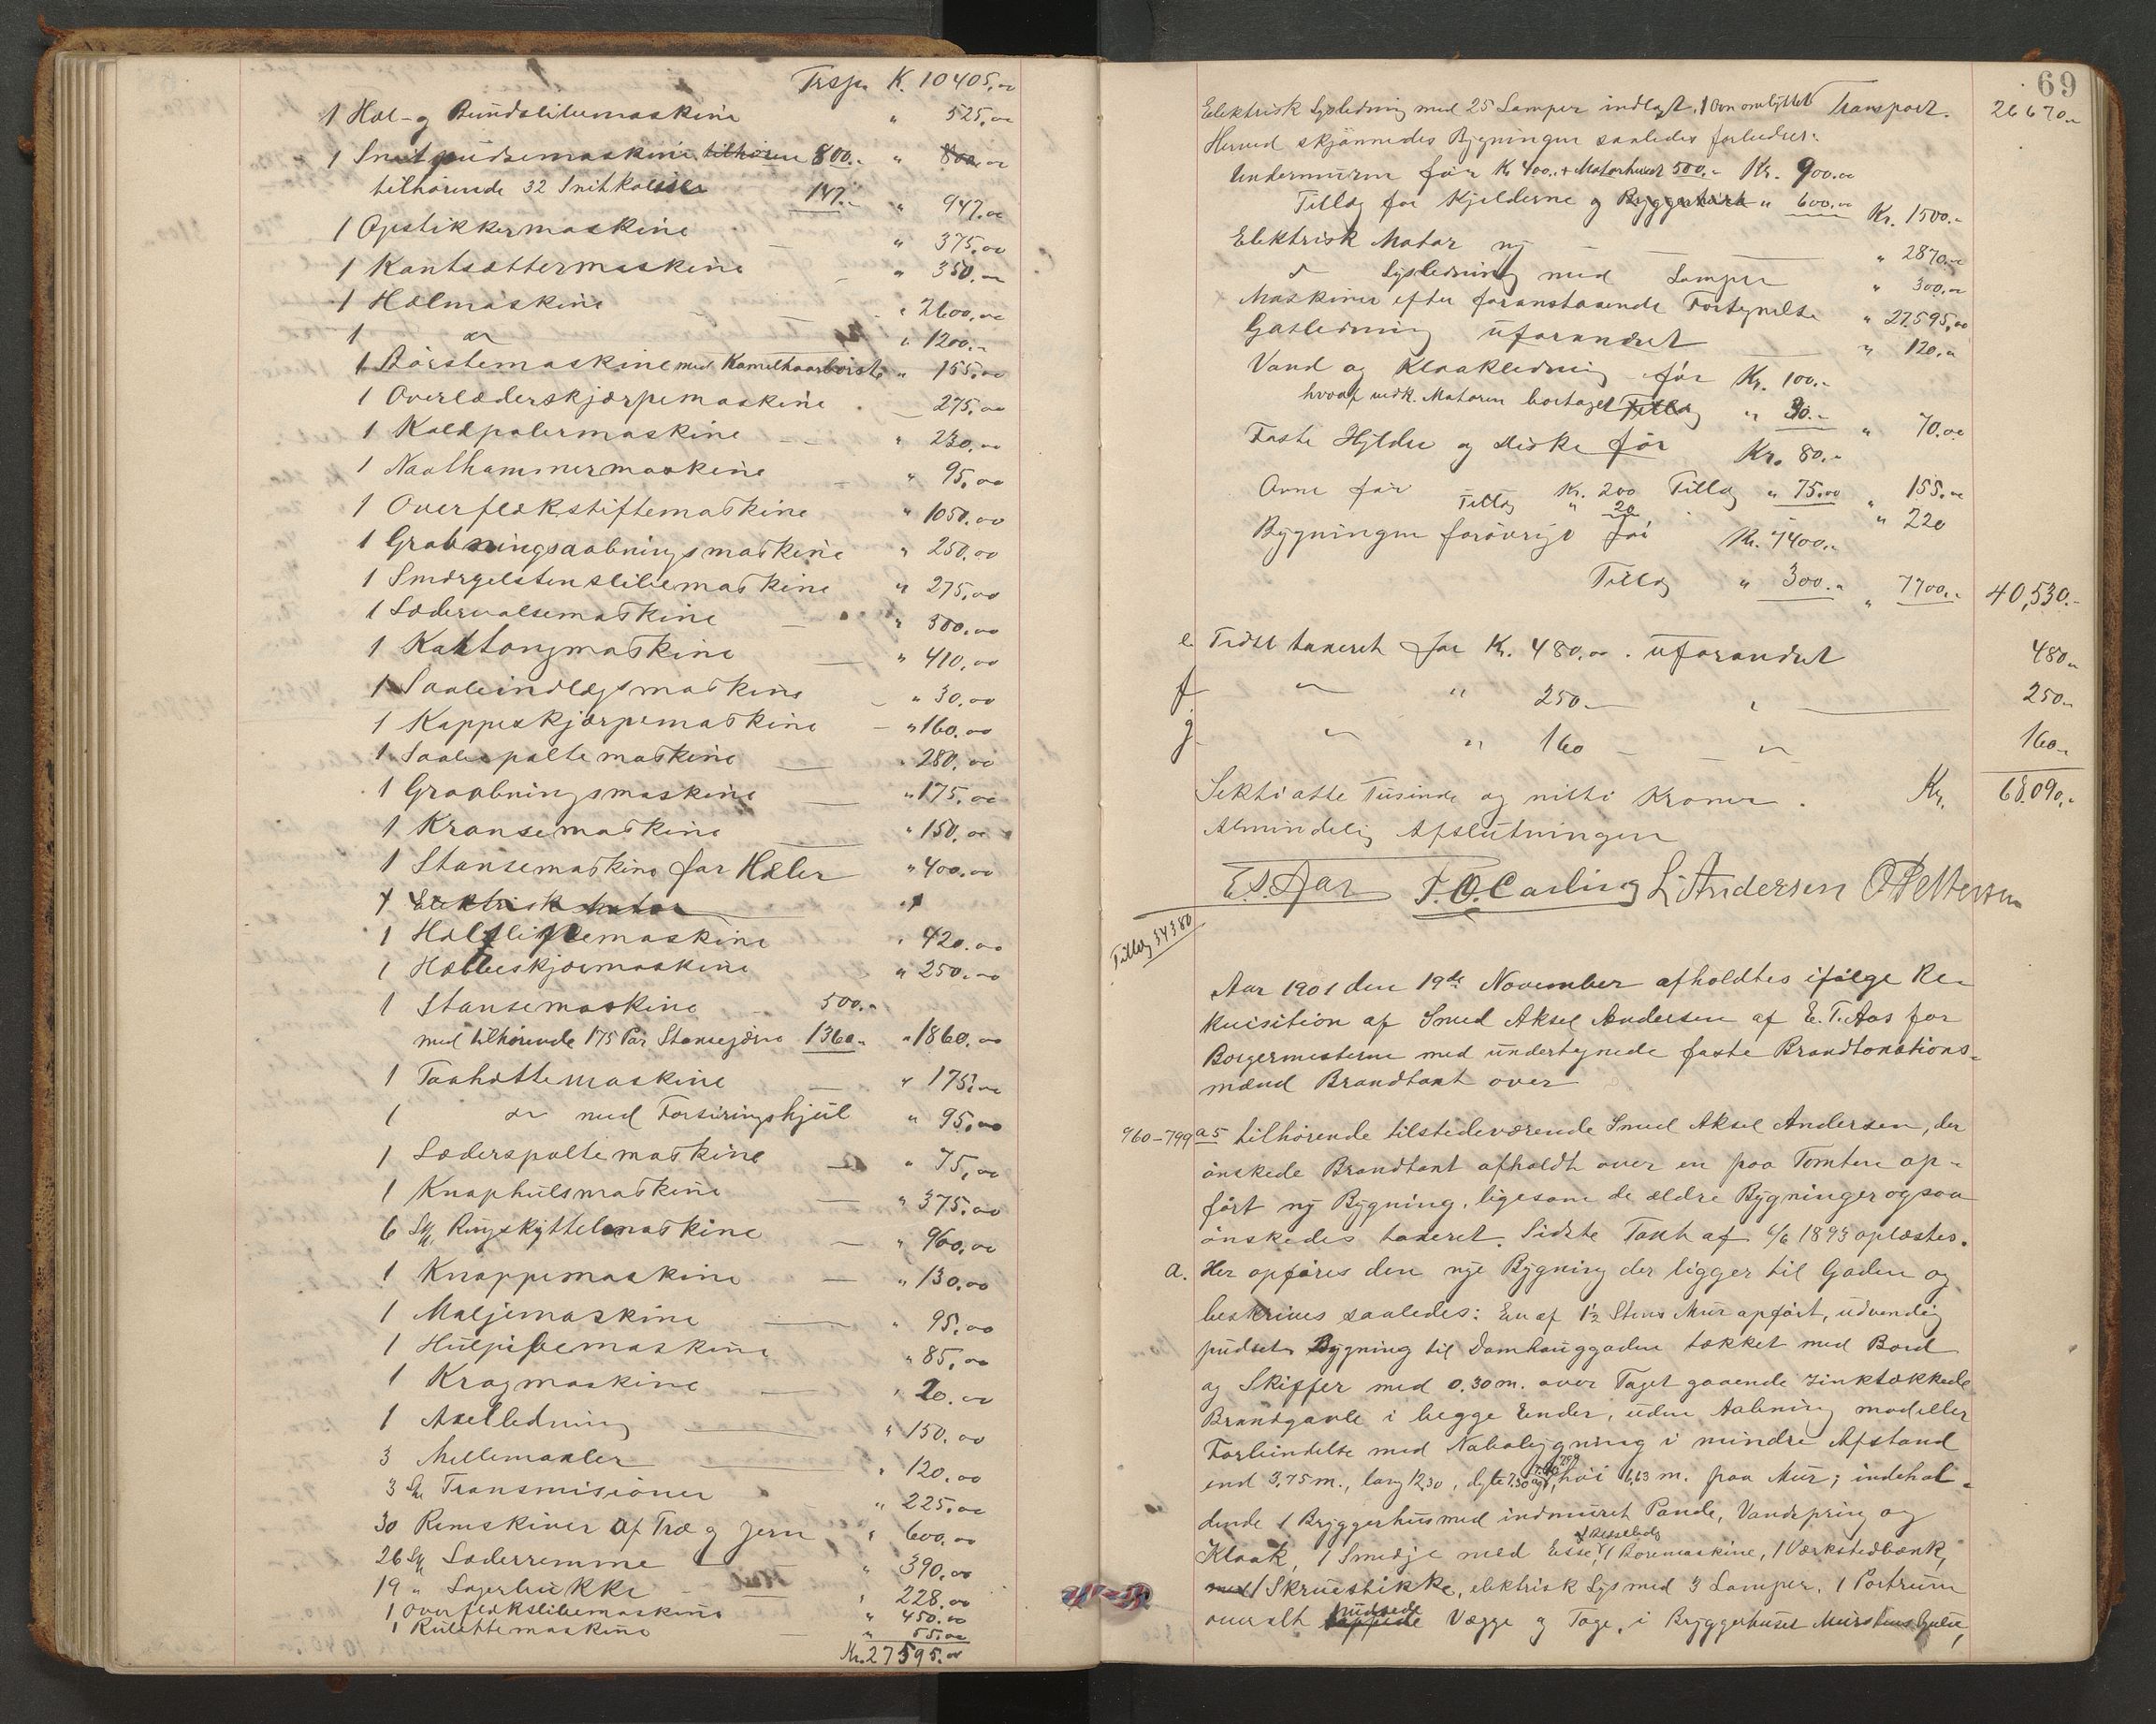 Trsp. K. 10405,00
1 Hæl- og Bundslibemaskine " 525,00
1 Snitpudsemaskine tilhören 800.- " 800,00
tilhørende 32 Snitkoliser 147.- " 947.00
1 Opstikkermaskine — " 375,00
1 Kantsættermaskine — " 350.00
1 Hælmaskine — " 2600,00
1 do " 1200.-
1 Börstemaskine med Kamelhaarbörste " 155,00
1 Overlæderskjærpemaskine — 275,00
1 Koldpolermaskine — " 230,00
1 Naathammermaskine — " 95,00
1 Overflækstiftemaskine " 1050.00
1 Grabningsaabningsmaskine " 250.00
1 Smergelstenslibemaskine " 275,00
1 Lædervalsemaskine — " 300,00
1 Kartongmaskine — " 410,00
1 Saaleindlægsmaskine — " 30,00
1 Kappeskjærpemaskine — " 160.00
1 Saalespaltemaskine — " 280,00
1 Graabningsmaskine — " 175,00
1 Kransemaskine — " 150,00
1 Stansemaskine for Hæler " 400,00
1 Elektrisk Motor
1 Hælslibemaskine " 420.00
1 Hælbeskjærmaskine " 250.00
1 Stansemaskine 500.-
med tilhörende 175 Par Stansejern 1360.- " 1860.00
1 Taahættemaskine — " 175,00
1 do med Forsiringshjul " 95,00
1 Læderspaltemaskine — " 75,00
1 Knaphulsmaskine — " 375,00
6 Stk. Ringskyttelmaskine — " 960,00
1 Knappemaskine — " 130.00
1 Maljemaskine — " 95,00
1 Hulpibemaskine " 85,00
1 Kragmaskine — " 20.00
1 Axelledning — " 150,00
3 Mellemaxler — " 120,00
3 Stk Transmisioner " 225,00
30 Remskiver af Træ og Jern " 600,00
26 Stk Læderremme " 390,00
19 " Lagerbukke — " 228.00
1 Overflækslibemaskine " 450.00
1 Rulettemaskine — " 55.00
Kr. 27595.00
69
Elektrisk Lysledning med 25 Lamper indlagt, 1 Ovn omlyttet Transport. 26670.-
Herved skjönnedes Bygningen saaledes forbedret:
Undermuren för Kr 400.- + Motorhuset 500.- Kr. 900.00
Tillæg for Kjelderne og Bryggerhuset " 600.00 Kr. 1500.-
Elektrisk Motor ny — " 2870.-
do Lysledning med Lamper " 300.00
Maskiner efter foranstaaende Fortegnelse " 27595,00
Gasledning uforandret — " 120.-
Vand og Kloakledning för Kr. 100.-
hvoraf vedk. Motoren bortaget Tillæg " 30.- " 70.00
Faste Hylder og Diske för Kr. 80.-
Tillæg " 75.00 " 155.00
Ovne för Kr. 200
Tillæg " 20 " 220
Bygningen forövrigt för Kr. 7400.-
Tillæg " 300.- " 7700.- 40,530.-
e. Tidt taxeret for Kr. 480.00. uforandret 480.-
f. " " 250.— " — 250.-
g. " " 160 — " 160.-
Sekti otte Tusinde og nitti Kroner. Kr. 68.090.-
Almindelig Afslutningen
E.T. Aas F.O. Carling L. Andersen O. Pettersen
Tillæg 34380
Aar 1901 den 19de November afholdtes ifölge Re-
kvisition af Smed Aksel Andersen af E. T. Aas for
Borgermesteren med undertegnede faste Brandtaxations-
mænd Brandtaxt over
960-799 a5 tilhörende tilstedeværende Smed Aksel Andersen, der
önskede Brandtaxt afholdt over en paa Tomten op-
fört ny Bygning, ligesom de ældre Bygninger ogsaa
önskedes taxeret. Sidste Taxt af 6/6 1893 oplæstes.
a. Her opföres den nye Bygning der ligger til Gaden og
beskrives saaledes: En af 1½ Stens Mur opfört, udvendig
pudset Bygning til Damhauggaden tækket med Bord
og Skiffer med 0.30 m. over Taget gaaende zinktækkede
Brandgavle i begge Ender, uden Aabning mod eller
Forbindelse med Nabobygning i mindre Afstand
end 3,75 m., lang 12,30, dyb 7.30 og höi 6,63 m. paa Mur; indehol-
dende 1 Bryggerhus med indmuret Pande, Vandspring og
Kloak, 1 Smedje med Esse, 1 Boremaskine, 1 Værkstedbænk,
med 1 Skruestikke, elektrisk Lys med 3 Lamper, 1 Portrum
overalt pudsede Vægge og Tage, i Bryggerhuset Murstens Gulv,